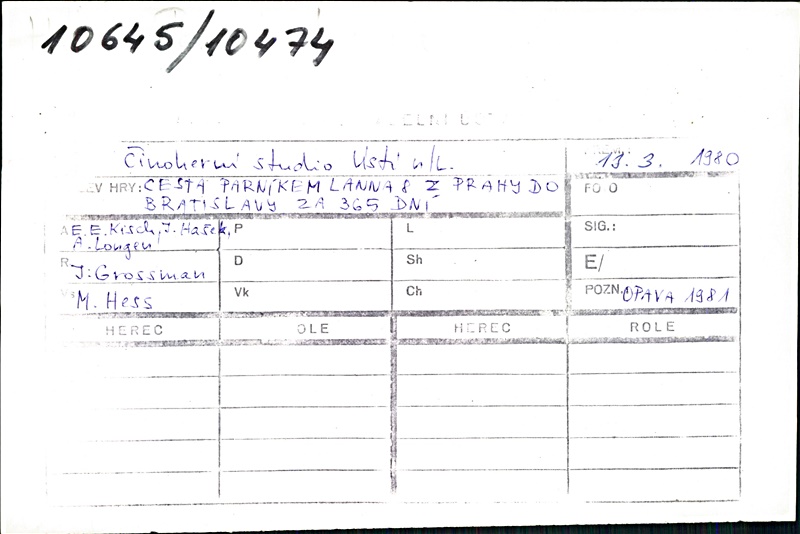 10645/10474
Činoherní studio Ústí n/L. 13. 3. 1980
EV HRY: CESTA PARNÍKEM LANNA 8 Z PRAHY DO
BRATISLAVY ZA 365 DNÍ
FO O
A E. E. Kisch, J. Hašek, P L SIG.:
A. Longen
R J. Grossman D Sh E/
M. Hess Vk Ch POZN. OPAVA 1981
HEREC OLE HEREC ROLE